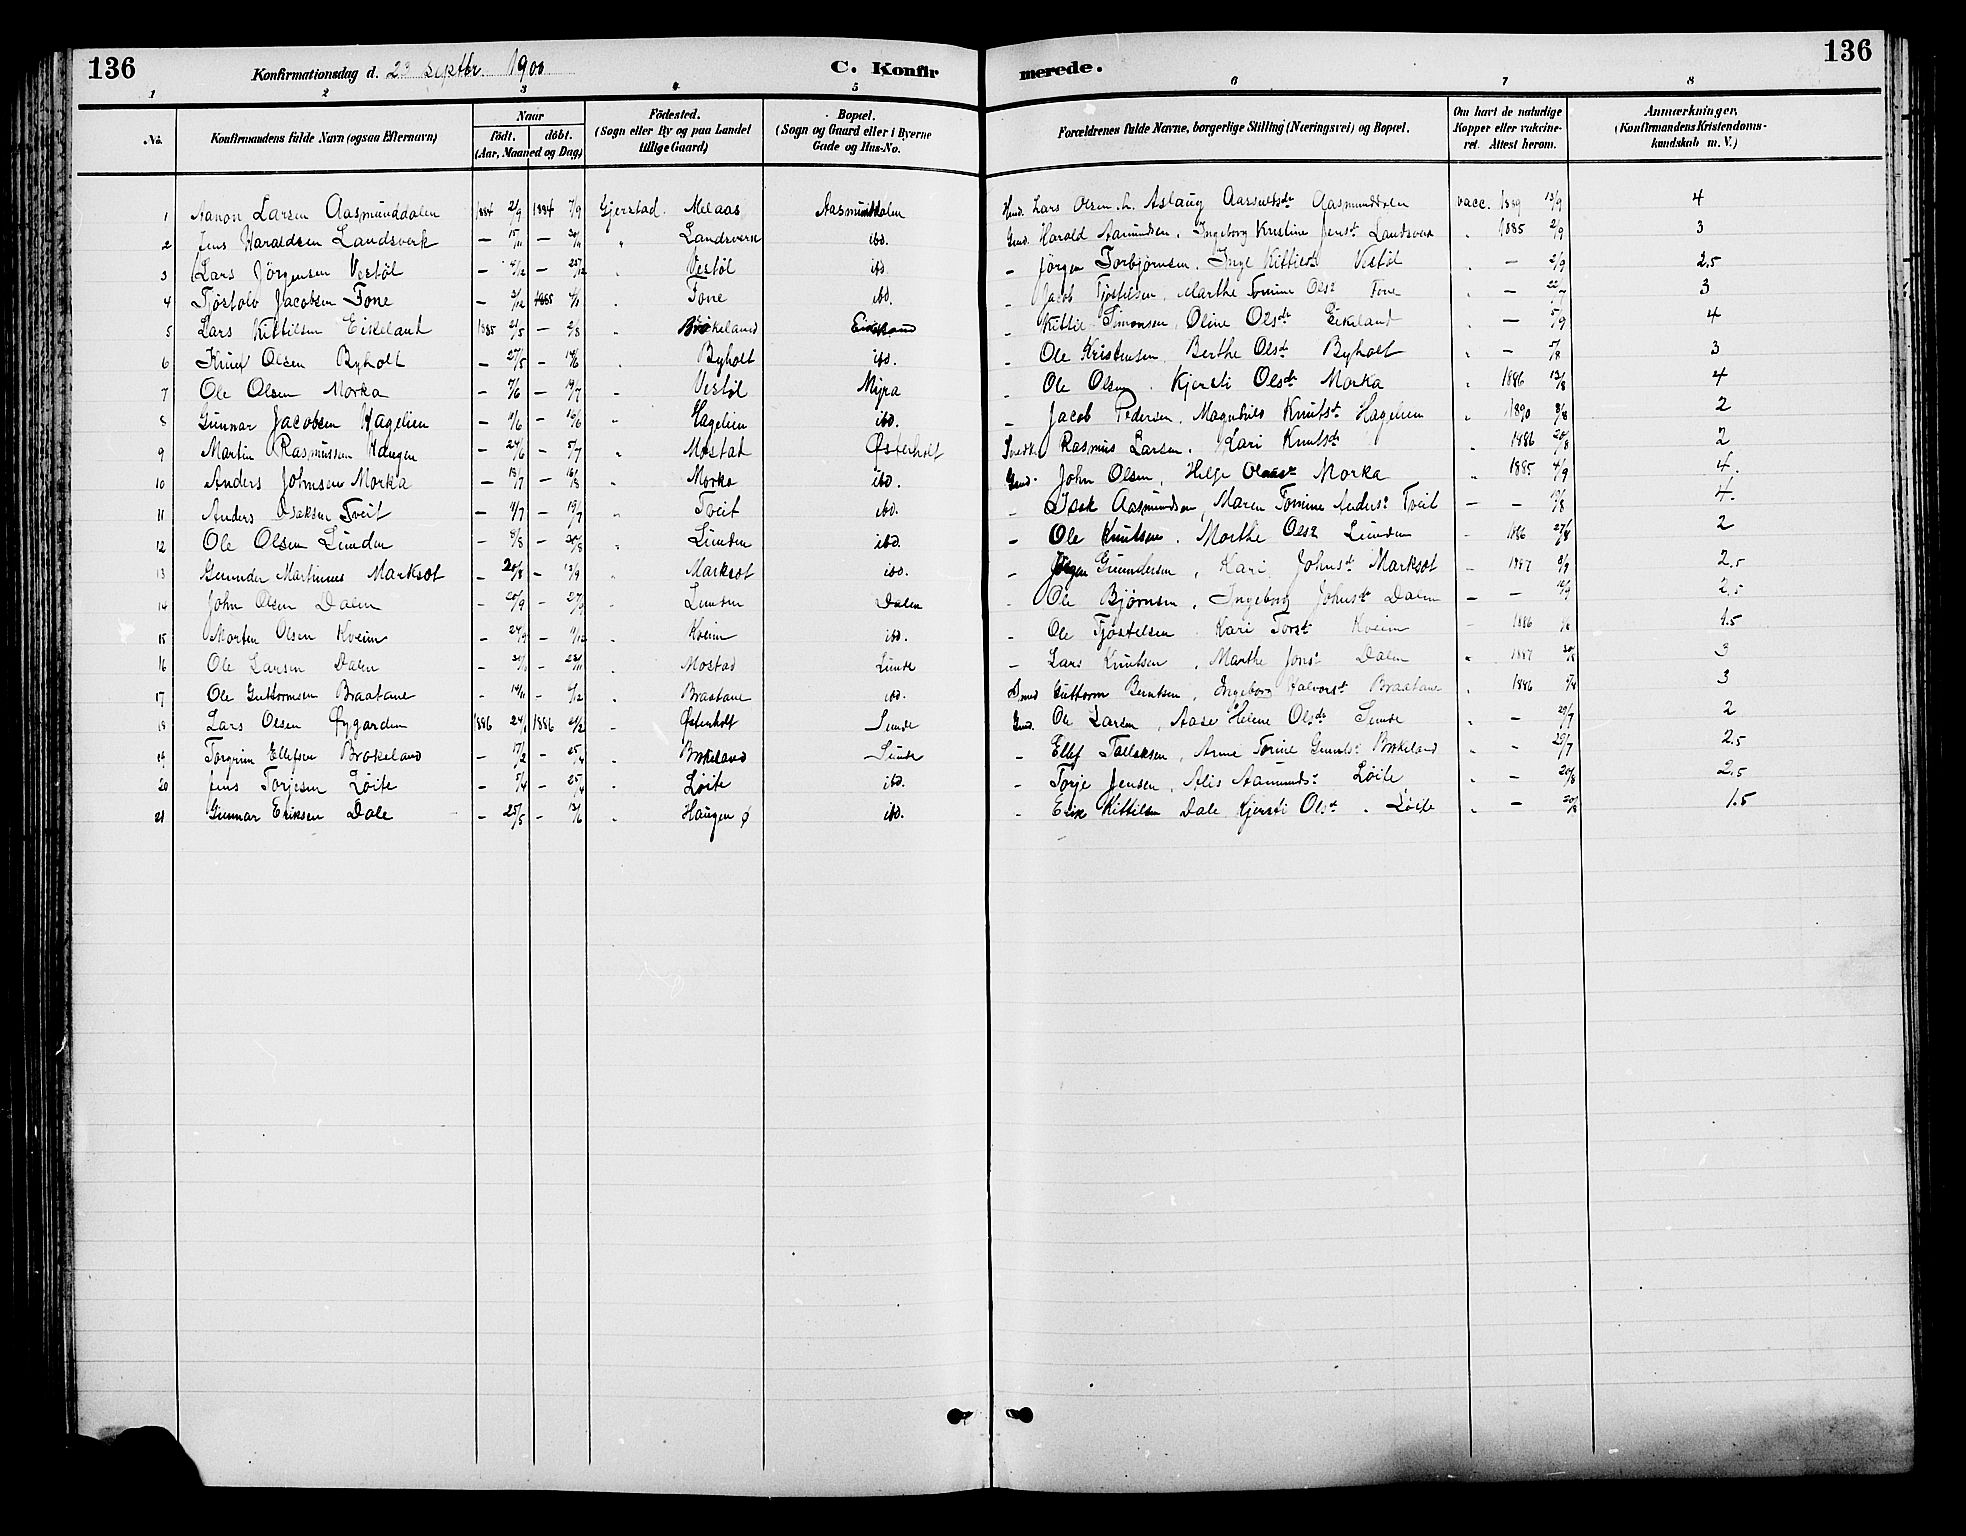 136 Konfirmationsdag d. 23 Septbr. 1900 C. Konfir merede. 136
1 2 3 4 5 6 7 8
No. Konfirmandens fulde Navn (ogsaa Efternavn) Naar födt. döbt. (Aar, Maaned og Dag) Födested. (Sogn eller By og paa Landet tillige Gaard) Bopæl. (Sogn og Gaard eller i Byerne Gade og Hus-No. Forældrenes fulde Navne, borgerlige Stilling (Næringsvei) og Bopæl. Om havt de naturlige Kopper eller vakcineret. Attest herom. Anmærkninger, (Konfirmandens Kristendomskundskab m. V.)
1 Aanon Larsen Aasmunddalen 1884 2/9 1884 7/9 Gjerstad. Melaas Aasmunddalen Lars Olsen Aslaug Aasmunddalen vacc. 1889 13/9 4
2 Jens Haraldsen Landsverk — 15/11 — 30/11 " Landsverk ibd. Gmd. Harald Aamundsen. Ingeborg Kristine Jensdt Landsverk " 1885 2/9 3
3 Lars Jörgensen Vestøl — 4/12 — 25/12 " Vestøl ibd. — Jörgen Torbjørnsen. Inge Kittilsdt Vestøl " — 2/9 2.5
4 Tjøstolv Jacobsen Fone — 3/12 1885 4/1 " Fone ibd. — Jacob Tjøstelsen, Marthe Tomine Olsd Fone " — 22/7 3
5 Lars Kittilsen Eikeland 1885 21/5 — 2/8 " Brøkeland Eikeland — Kittil Simonsen, Oline Olsdt Eikeland " — 5/9 4
6 Knut Olsen Byholt — 27/5 — 14/6 " Byholt ibd. — Ole Kristensen Berthe Olsdt Byholt " — 5/8 3
7 Ole Olsen Morka — 7/6 — 19/7 " Vestøl Myra — Ole Olsen. Kjersti Olsdt Morka " 1886 13/8 4
8 Gunnar Jacobsen Hagelien — 11/6 — 10/6 " Hagelien ibd. — Jacob Pedersen. Magnhild Knutsdt Hagelien " 1890 8/8 2
9 Martin Rasmussen Haugen — 24/6 — 5/7 " Mostad Østerholt Rasmus Larsen. Kari Knutsdt " 1886 20/8 2
10 Anders Johnsen Morka — 13/7 — 16/8 " Morka ibd. Gmd. John Olsen, Helge Morka " 1885 4/9 4.
11 Anders Isaksen Tveit — 11/7 — 19/7 " Tveit ibd. — Isak Aasmundsen, Maren Tomine Andersd Tveit — — 19/8 4.
12 Ole Olsen Lunden — 8/8 — 30/8 " Lunden ibd. — Ole Knutsen. Marthe Olsd Lunden " 1886 27/8 2
13 Gunder Martinius Marksøt — 20/8 — 13/9 " Marksøt ibd. — Jörgen Gundersen, Kari Johnsdt Marksøt " 1887 9/9 2.5
14 John Olsen Dalen — 20/9 — " Lunden Dalen — Ole Bjørnsen, Ingeborg Johnsdt Dalen — — 12/9 2.5
15 Morten Olsen Kveim — 24/9 — " Kveim ibd. — Ole Tjøstelsen Kari Torsdt Kveim " 1886 1.5
16 Ole Larsen Dalen — — 22/11 " Mostad Lunde — Lars Knutsen, Marthe Jonsdt Dalen " 1887 3
17 Ole Guttormsen Braatane — 14/11 — 6/12 " Braatane ibd. Guttorm Berntsen, Ingeborg Halvorsdt Braatane " 1886 3
18 Lars Olsen Øygarden 1886 24/1 1886 21/2 " Østerholt Sunde Gmd. Ole Larsen, Aase Helene Olsdt Sunde " — 29/7 2
19 Torgrim Ellefsen Brøkeland — 17/2 — 25/4 " Brøkeland Sunde — Ellef Tallaksen, Anne Torine Brøkeland " — 29/7 2.5
20 Jens Torjesen Løite — 5/4 — 25/4 " Løite ibd. — Torje Jensen, Alis Aamundsdt Løite " — 20/8 2.5
21 Gunnar Eriksen Dale — 25/5 — 13/6 " Haugen ø ibd. — Erik Kittilsen Dale Kjersti Olsdt. Løite " — 20/8 1.5